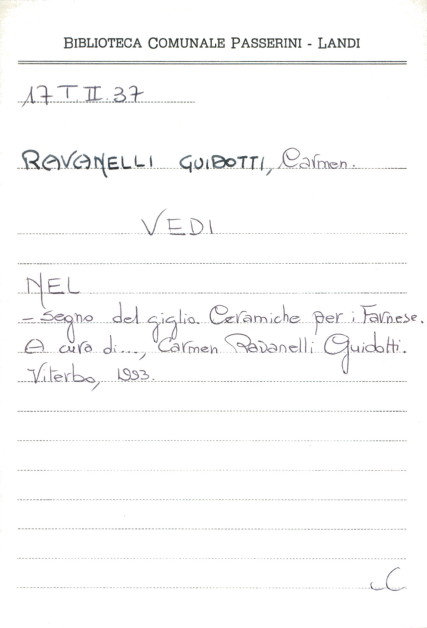 BIBLIOTECA COMUNALE PASSERINI - LANDI
17 T II. 37
RAVANELLI GUIDOTTI, Carmen.
VEDI
NEL
- Segno del giglio. Ceramiche per i Farnese.
A cura di..., Carmen Ravanelli Guidotti.
Viterbo, 1993.